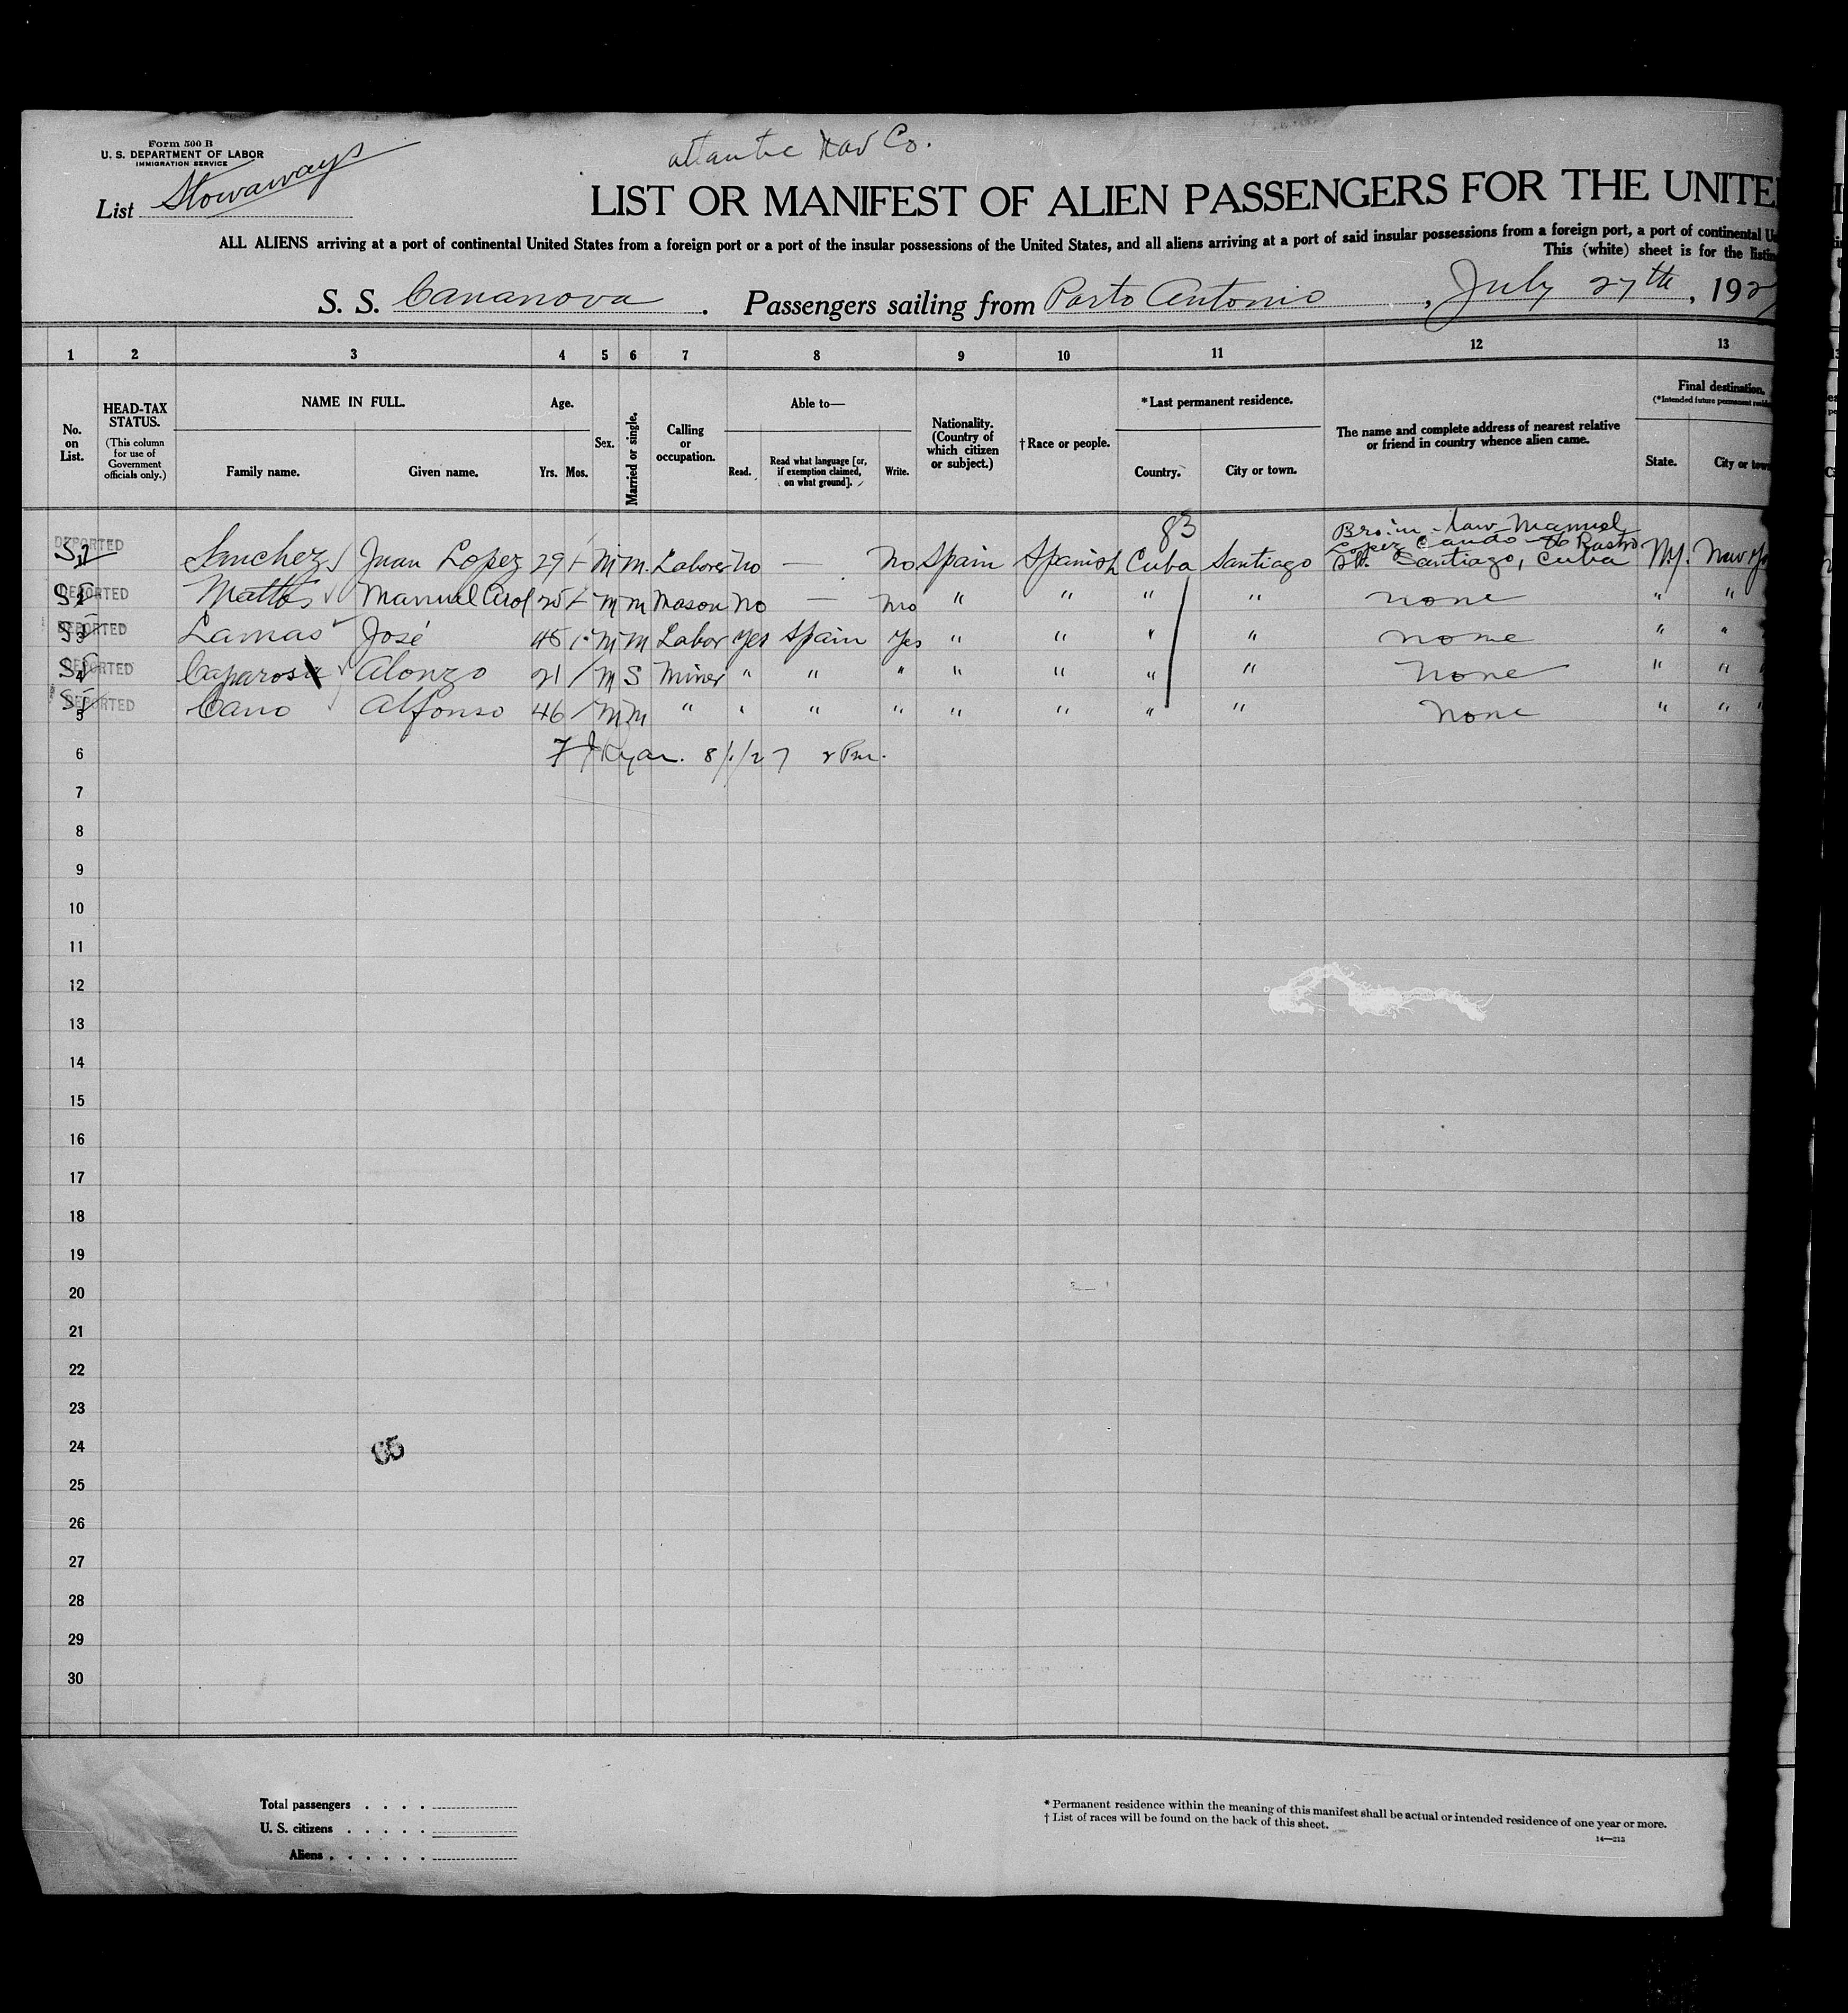 Form 500 B
U. S. DEPARTMENT OF LABOR
IMMIGRATION SERVICE
List Stowaways
Atlantic Nav Co.
LIST OR MANIFEST OF ALIEN PASSENGERS FOR THE UNITE
ALL ALIENS arriving at a port of continental United States from a foreign port or a port of the insular possessions of the United States, and all aliens arriving at a port of said insular possessions from a foreign port, a port of continental U
This (white) sheet is for the listin
S. S. Cananova. Passengers sailing from Porto Antonio, July 27th, 192
1 2 3 4 5 6 7 8 9 10 11 12 13
No. on List.
HEAD-TAX STATUS.
(This column for use of Government officials only.)
NAME IN FULL.
Family name. Given name.
Age.
Yrs. Mos.
Sex.
Married or single.
Calling or occupation.
Able to—
Read. Read what language [or, if exemption claimed, on what ground]. Write.
Nationality. (Country of which citizen or subject.)
†Race or people.
*Last permanent residence.
Country. City or town.
The name and complete address of nearest relative or friend in country whence alien came.
Final destination.
(*Intended future permanent resid
State. City or tow
83
DEPORTED 1 Sanchez Juan Lopez 29 M M. Laborer No — No Spain Spanish Cuba Santiago Bro. in-law Manuel Lopez Rastro St. Santiago, Cuba N.Y. New Yo
DEPORTED 2 Mattos Manuel 25 M M Mason No — No " " " " none " "
DEPORTED 3 Lamas José 45 M M Labor Yes Spain Yes " " " " none " "
DEPORTED 4 Alonzo 21 M S Miner " " " " " " " none " "
DEPORTED 5 Cano Alfonso 46 M M " " " " " " " " none " "
6 Ryan. 8/1/27 2 Pm.
7
8
9
10
11
12
13
14
15
16
17
18
19
20
21
22
23
24
65
25
26
27
28
29
30
Total passengers . . . .
U. S. citizens . . . . .
Aliens . . . . . .
* Permanent residence within the meaning of this manifest shall be actual or intended residence of one year or more.
† List of races will be found on the back of this sheet.
14—213